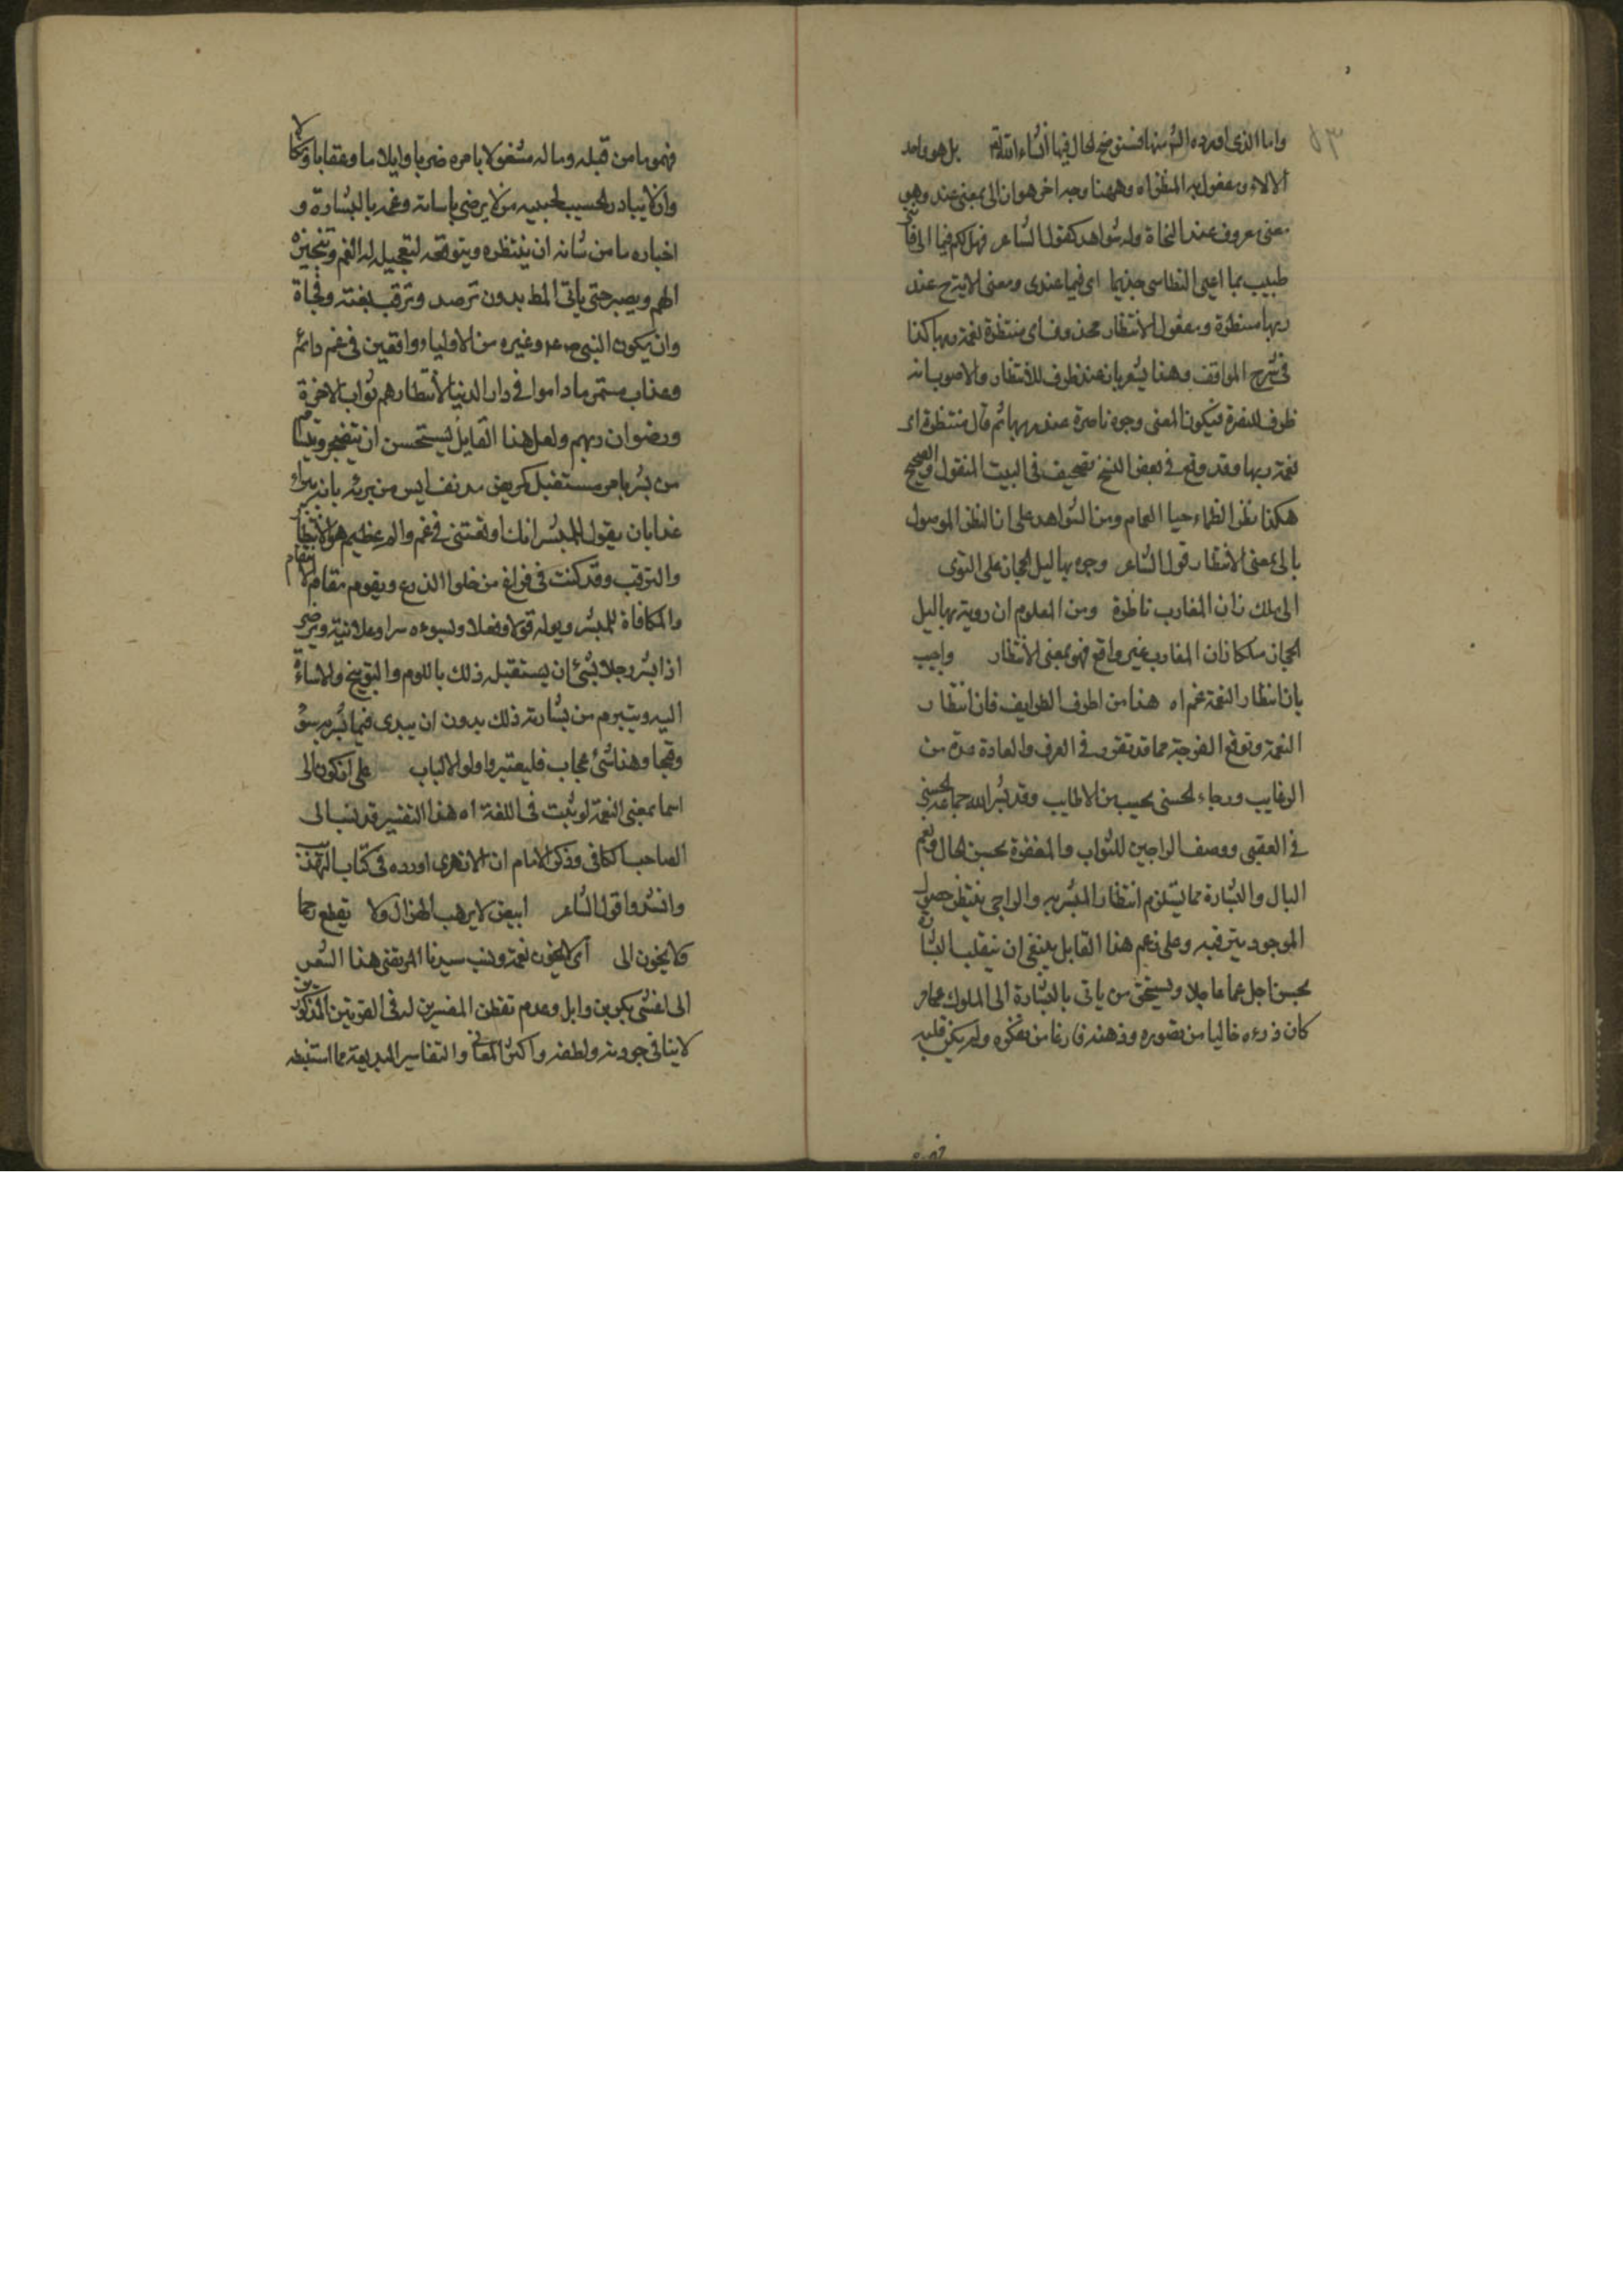 واما الذى اورده الش منها فستوضح لحال فيها انشاء الله تع بل هو واحد
الالاء ومفعول به المنظر اه وههنا وجه اخر هو ان الى بمعنى عند وهو
معنى معروف عند النحاة وله شواهد كقول الشاعر فهل لكم فيما الى فانى
طبيب بما اعيى النطاسى حذيما اى فيما عندى ومعنى الاية ح عند
ربها منتظرة ومفعول الانتظار محذوف اى منتظرة نعمة ربها كذا
فى شرح المواقف وهذا يشعر بان عند ظرف للانتظار والاصوب انه
ظرف للنضرة فيكون المعنى وجوه ناضرة عند ربها ثم قال منتظرة اى
نعمة ربها وقد وقع فى بعض النسخ تصحيف فى البيت المنقول والصحيح
هكذا نظر الظماء حيا الغمام ومن الشواهد على ان النظر الموصول
بالى بمعنى الانتظار قول الشاعر وجوه بها ليل الحجاز على النوى
الى ملك زان المغارب ناظرة ومن المعلوم ان رؤية بها ليل
الحجاز ملكا زان المغارب غير واقع فهو بمعنى الانتظار واجيب
بان انتظار النعمة غم اه هذا من اطرف الطرايف فان انتظار
النعمة وتوقع الفرجة مما قد تقرر فى العرف والعادة عده من
الرغايب ورجاء الحسنى يحسب من الاطايب وقد بشر الله جماعة بالحسنى
فى العقبى ووصف الراجين للثواب والمغفرة بحسن الحال ونعم
البال والبشارة مما يستلزم انتظار المبشر به والراجى ينتظر حصول
الموجود يترقبه وعلى زعم هذا القايل ينبغى ان ينقلب البشارة
بحسن اجل غما عاجلا ويستحق من ياتى بالبشارة الى الملوك مما
كان ذرعه خاليا من تصوره وذهنه فارغا من تفكره ولم يكن قلبه
فهموما من قبله وماله مشغولا بامره ضربا وايلاما وعقابا ونكالا
وان لا يبادر الحسيب لحبيبه من لا يرضى باساته وغمه بالبشارة و
اخباره ما من شانه ان ينتظره ويتوقعه لتعجيله له الغم وتنجيزه
الهم ويصبر حتى ياتى المط بدون ترصد وترقب بغتة وفجاة
وان يكون النبى صلعم وغيره من الاولياء واقعين فى غم دائم
وعذاب مستمر ما داموا فى دار الدنيا لانتظارهم ثواب الاخرة
ورضوان ربهم ولعل هذا القايل يستحسن ان يتضجر ويتسام
من بشر بامر مستقبل كمريض مدنف ايس من برئه بانه يبرا
غدا بان يقول للمبشر انك اوقعتنى فى غم والم عظيم هو الانتظار
والترقب وقد كنت فى فراغ من خلو الذرع ويقوم مقام الانتقام
والمكافاة للمبشر ويوله قولا وفعلا ويسوءه سرا وعلانية ويرضى
اذا بشر رجلا بشئ ان يستقبله ذلك باللوم والتوبيخ والاساءة
اليه ويتبرم من بشارته ذلك بدون ان يبدى فيما بشر به سوء
وقبحا وهذا شئ عجاب فليعتبروا اولو الالباب على ان كون الى
اسما بمعنى النعمة لو ثبت فى اللغة اه هذا التفسير قد نسب الى
الصاحب الكافى وذكر الامام ان الازهرى اورده فى كتاب التهذيب
وانشدوا قول الشاعر ابيض لا يرهب الهزال ولا يقطع رحما
ولا يخون الى اى لا يخون نعمة ونسب سيدنا المرتضى هذا الشعر
الى اعشى بكر بن وايل وعدم تفطن المفسرين له فى القرنين المذكورين
لا ينافى جودته ولطفه واكثر المعانى والتفاسير البديعة مما استنبطه